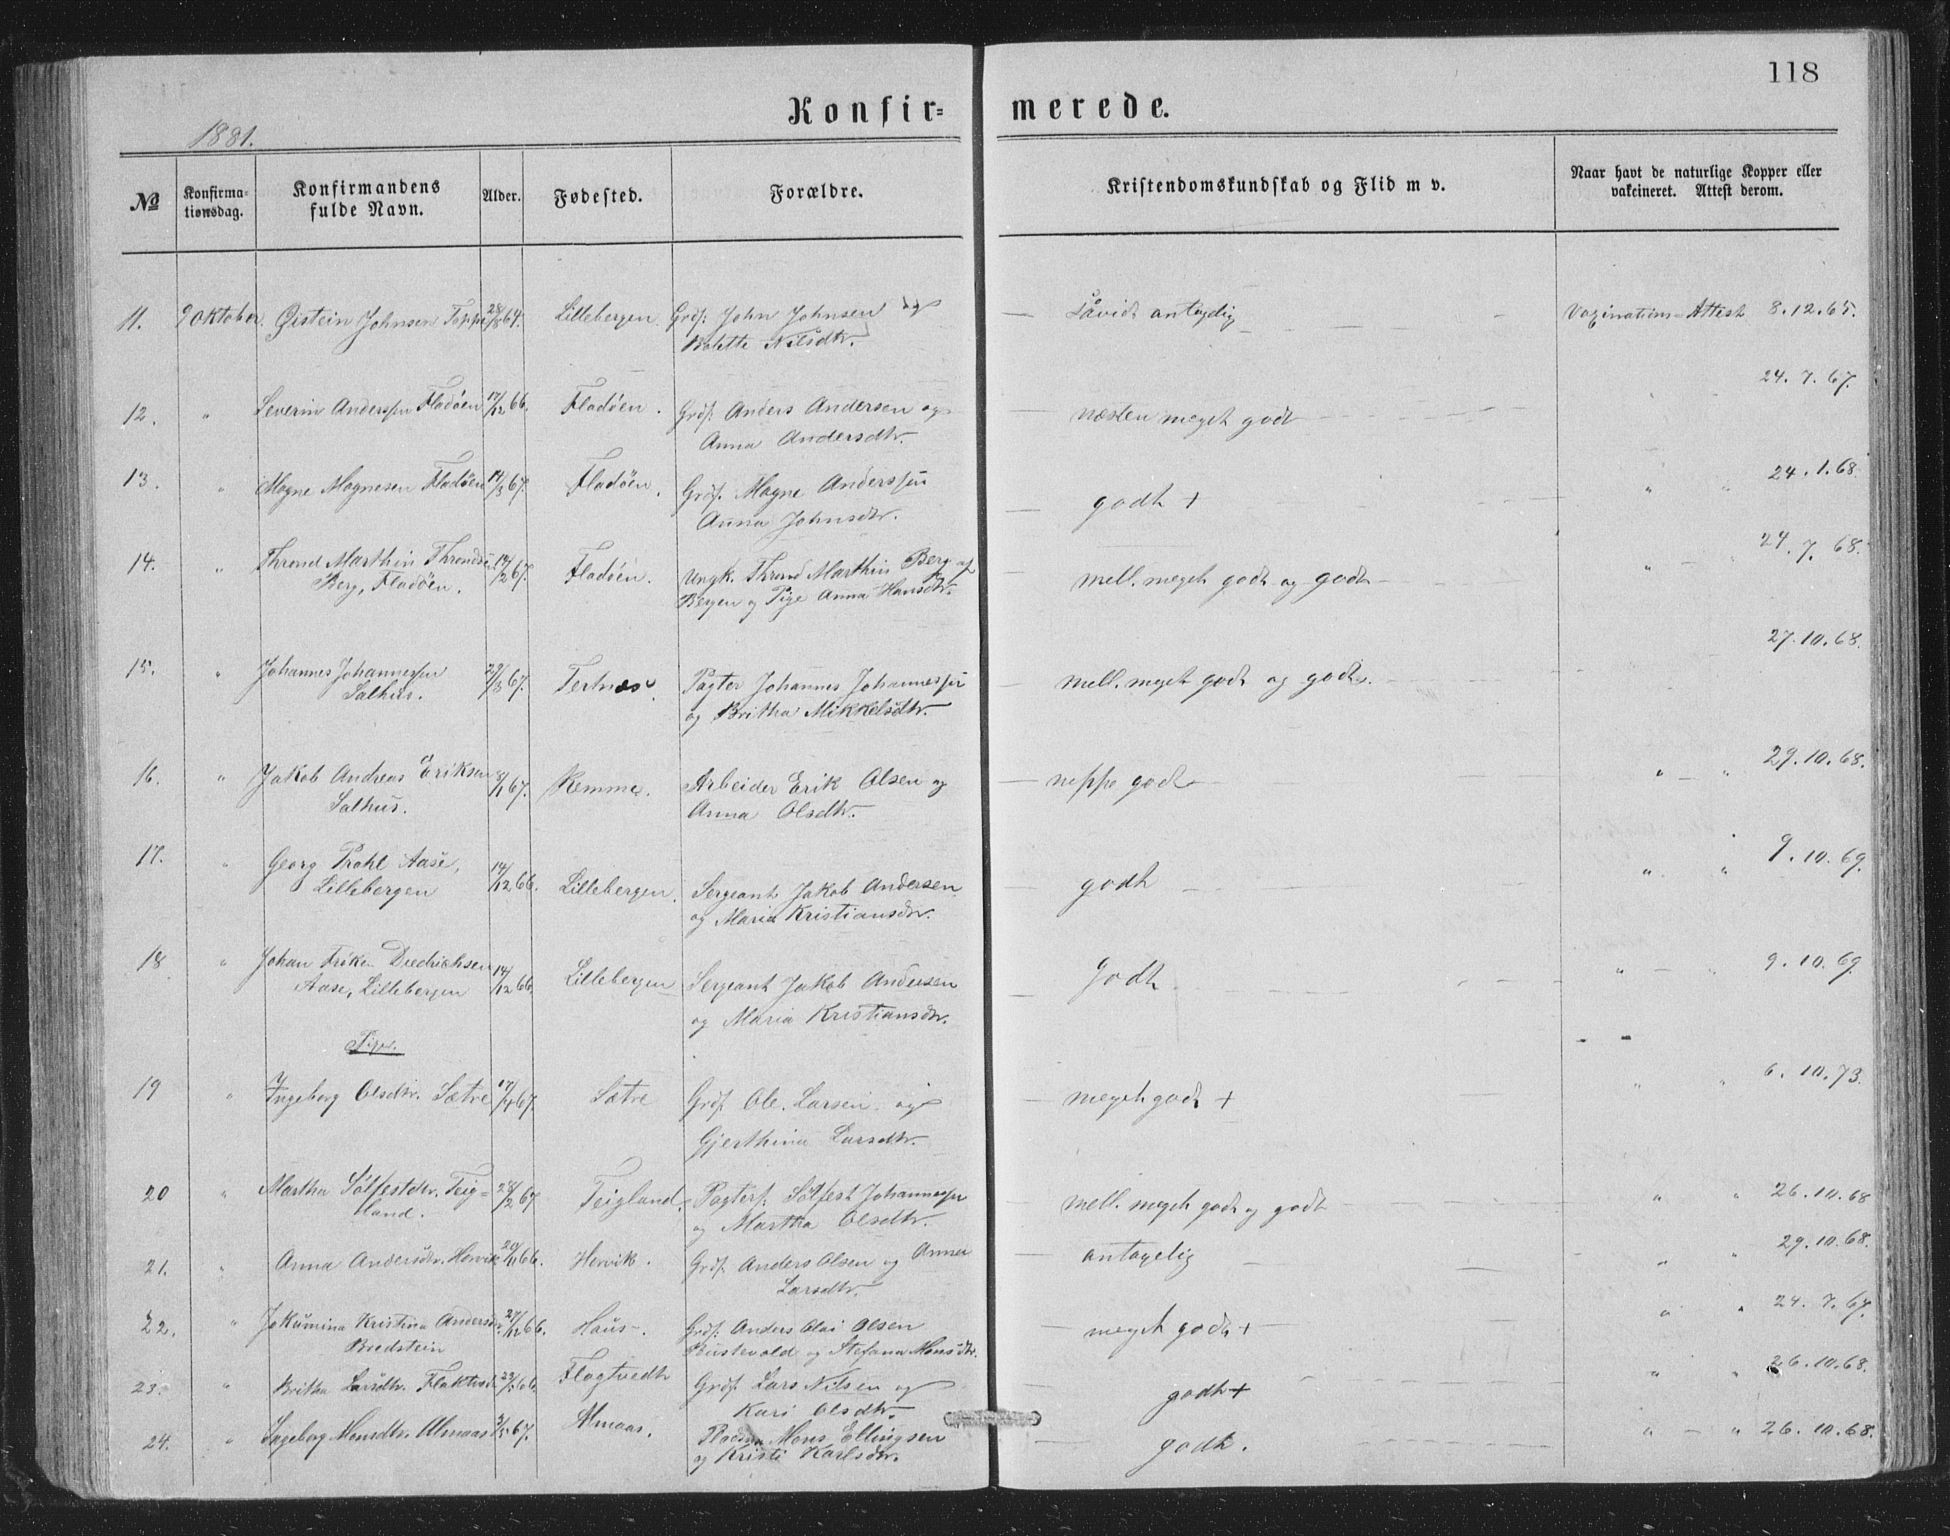 118
Konfir=
merede.
1881.
№
Konfirma-
tionsdag.
Konfirmandens
fulde Navn.
Alder.
Fødested.
Forældre.
Kristendomskundskab og Flid m v.
Naar havt de naturlige Kopper eller
vakcineret. Attest derom.
11. 9 Oktober. Øistein Johnsen Toppe 28/8 64. Lillebergen. Grdf. John Johnsen og
Bolette Nilsdtr.
Såvidt antagelig
Vaxinations-Attest 8.12.65.
12. " Severin Anderssen Fladöen 17/12 66. Fladöen. Grdf. Anders Andersen og
Anna Andersdtr.
næsten meget godt
24. 7. 67.
13. " Magne Magnesen Fladöen 14/3 67. Fladöen. Grdf. Magne Anderssen
Anna Johnsdtr.
godt +
" " 24. 1. 68.
14. " Thrond Marthin Thronds
Berg, Fladöen. 14/2 67. Fladöen. Ungk. Thrond Marthin Berg af
Bergen og Pige Anna Hansdtr.
mell. meget godt og godt
" " 24. 7. 68.
15. " Johannes Johannessen
Salhus. 29/3 67. Tertnæs. Pagter Johannes Johannessen
og Britha Mikkelsdtr.
mell. meget godt og godt.
27. 10. 68.
16. " Jakob Andreas Eriksen
Salhus. 8/1 67. Remme. Arbeider Erik Olsen og
Anna Olsdtr.
neppe godt
" " 29. 10. 68.
17. " Georg Prahl Aase,
Lillebergen 14/12 66. Lillebergen. Sergeant Jakob Andersen
og Maria Kristiansdtr.
godt
" " 9. 10. 69.
18 " Johan Friken Diedrichsen
Aase, Lillebergen 14/12 66. Lillebergen Sergeant Jakob Andersen
og Maria Kristiansdtr.
Godt
" " 9. 10. 69.
Piger.
19 " Ingeborg Olsdtr. Sætre 17/4 67. Sætre Grdf. Ole Larsen og
Gjerthina Larsdtr.
meget godt +
" " 6. 10. 73.
20 " Martha Sölfestdtr. Teig=
land. 28/2 67. Teigland. Pagterf. Sölfest Johannessen
og Martha Olsdtr.
mell. meget godt og godt
" " 26. 10. 68
21. " Anna Andersdtr. Hervik 20/11 66. Hervik. Grdf. Anders Olsen og Anna
Larsdtr.
antagelig
" " 29. 10. 68.
22. " Jakumina Kristina Andersd
Bredstein 27/12 66. Haus. Grdf. Anders Olai Olsen
Bustevold og Stefana Monsdtr.
meget godt +
" " 24. 7. 67.
23. " Britha Larsdtr. Flaktvedt Flagtvedt Grdf. Lars Nilsen og
Kari Olsdtr.
godt +
" " 26. 10. 68.
24. " Ingeborg Monsdtr. Almaas 3/5 67. Almaas. Pladsm. Mons Ellingsen
og Kristi Karlsdtr.
godt.
" " 26. 10. 68.